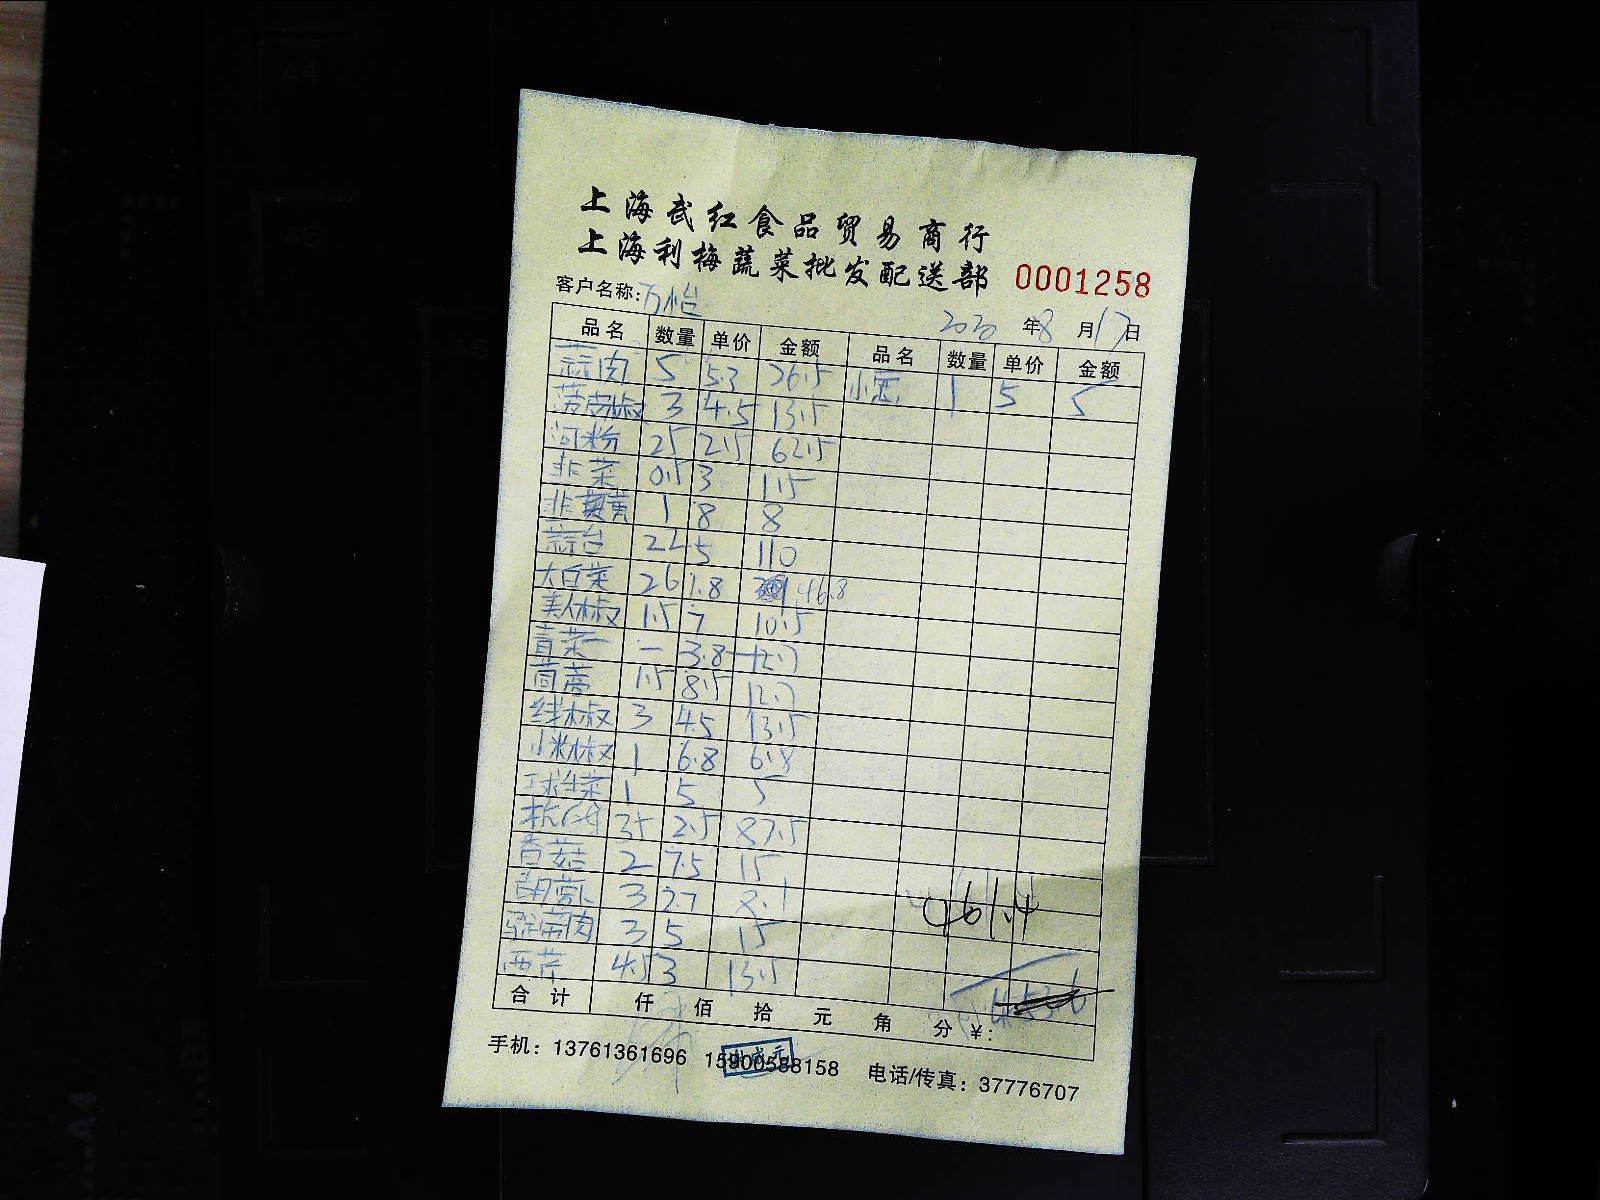 上海武红食品贸易商行
上海利梅蔬菜批发配送部 0001258
客户名称:万怡 2020年8月17日
品名 数量 单价 金额 品名 数量 单价 金额
蒜肉 5 5.3 26.5 小葱 1 5 5
薄皮椒 3 4.5 13.5
河粉 25 2.5 62.5
韭菜 0.5 3 1.5
韭黄 1 8 8
蒜台 22 5 110
大白菜 26 1.8 46.8
美人椒 1.5 7 10.5
青菜 一 3.8 12.7
茼蒿 1.5 8.5 12.7
线椒 3 4.5 13.5
小米椒 1 6.8 6.8
球生菜 1 5 5
杭白菜 35 2.5 87.5
香菇 2 7.5 15
胡萝卜 3 2.7 8.1
马蹄肉 3 5 15
西芹 4.5 3 13.5
461.4
453.6
合计 仟 佰 拾 元 角 分 ¥:
手机：13761361696 15900588158 电话/传真：37776707